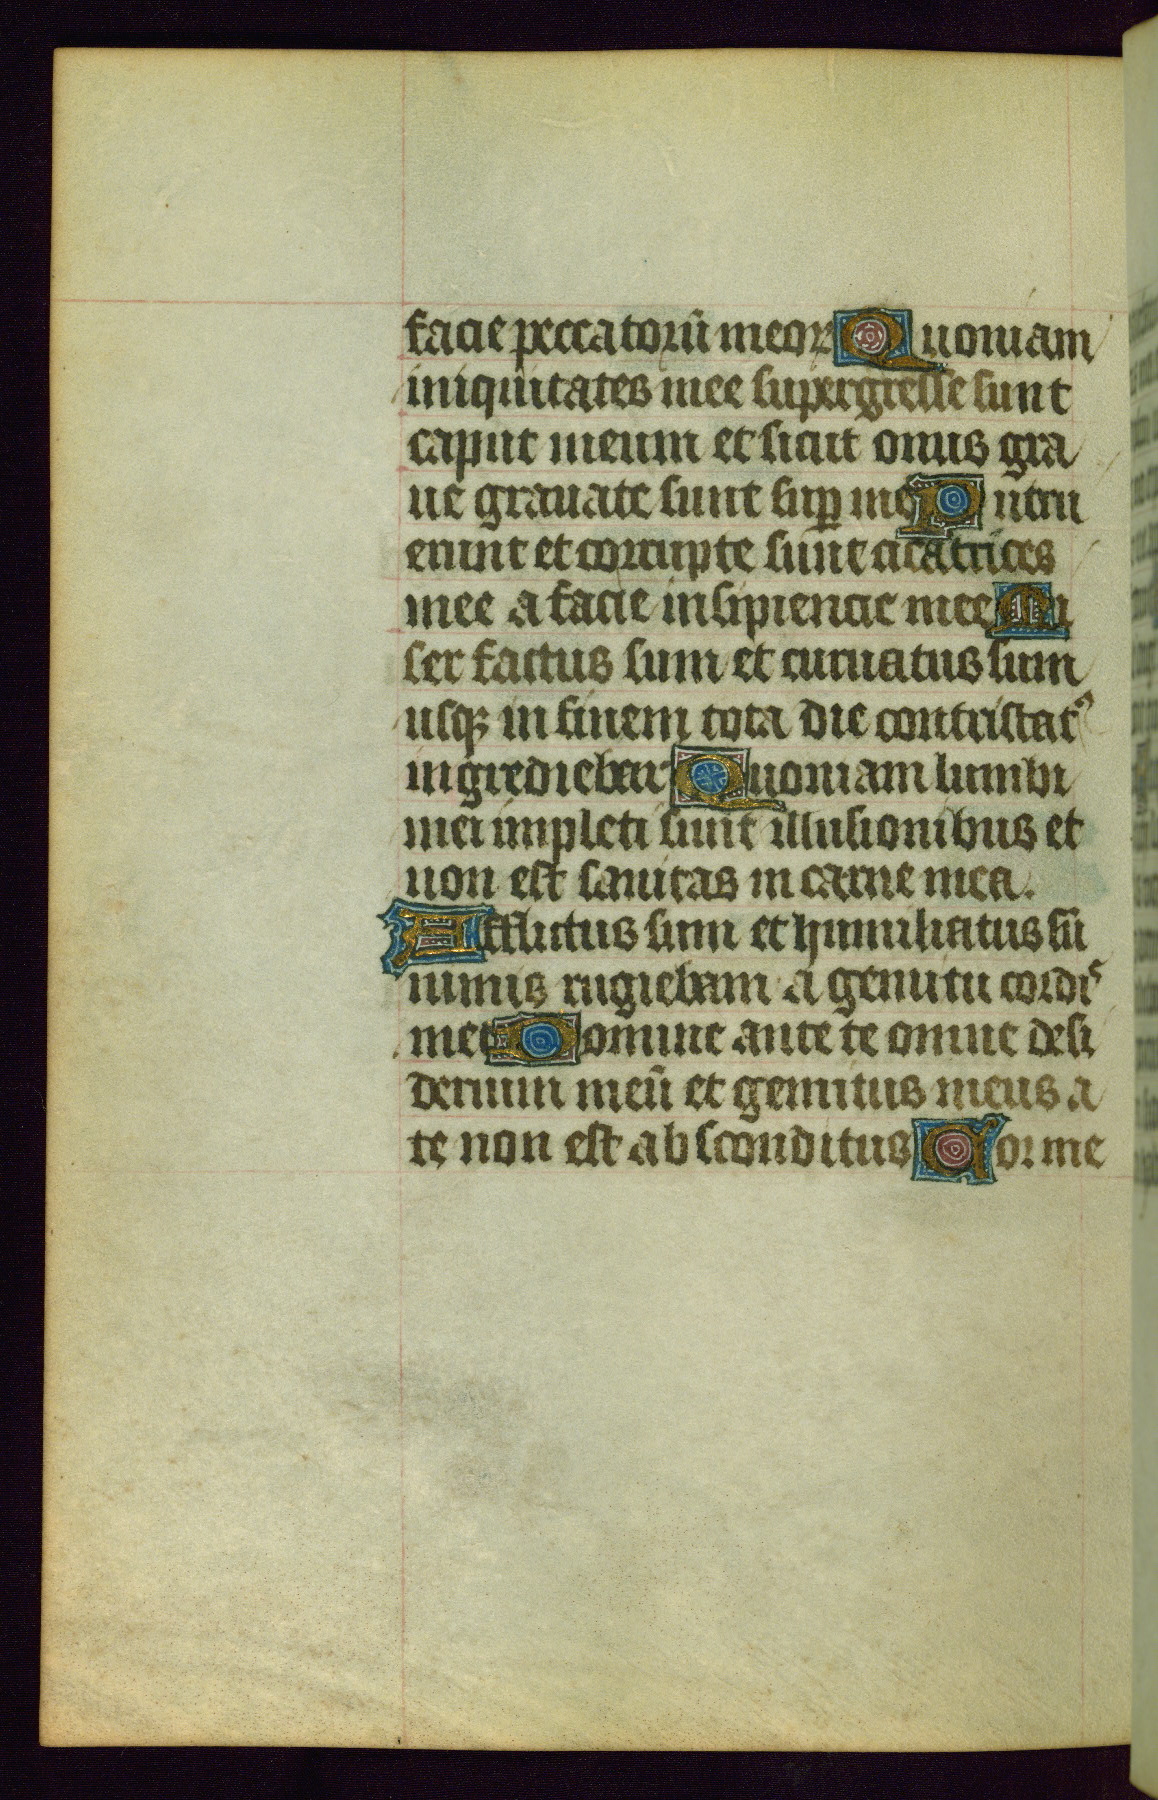 facie peccatorū meoꝝ Quoniam
iniquitates mee supergresse sunt
caput meum et sicut onus gra
ue grauate sunt suꝑ me Putru
erunt et corrupte sunt cicatrices
mee a facie insipiencie mee Mi
ser factus sum et curuatus sum
usqꝫ in finem tota die contristatꝰ
ingrediebar Quoniam lumbi
mei impleti sunt illusionibus et
non est sanitas in carne mea.
Afflictus sum et humiliatus sū
nimis rugiebam a gemitu cordis
mei Domine ante te omne desi
derium meū et gemitus meus a
te non est absconditus Cor me